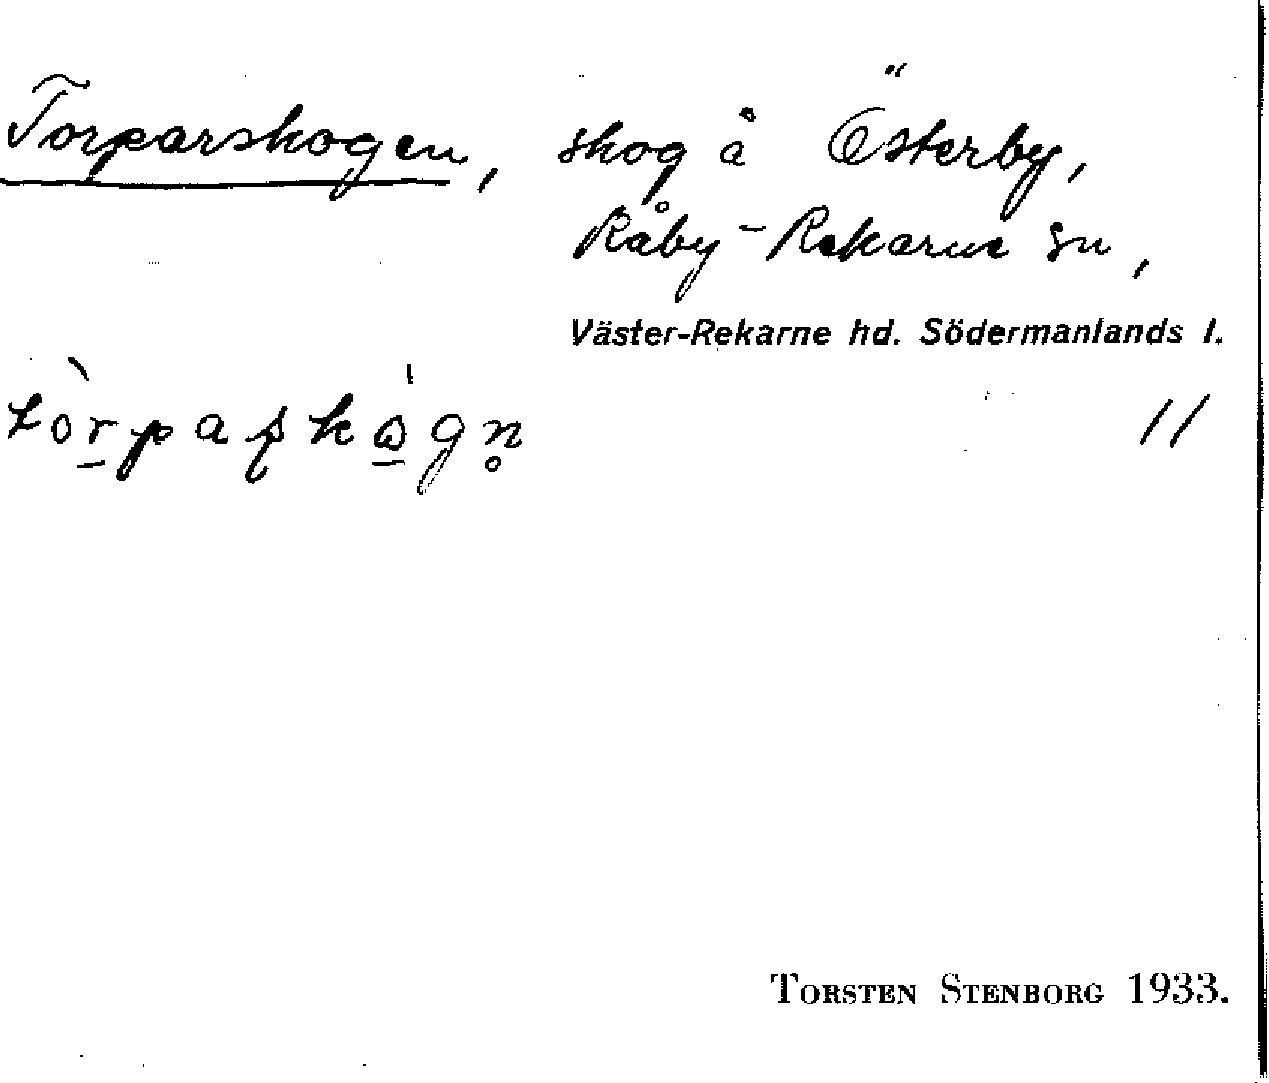 Torparskogen, skog å Österby,
Råby-Rekarne sn,
Väster-Rekarne hd. Södermanlands l.
11
TORSTEN STENBORG 1933.